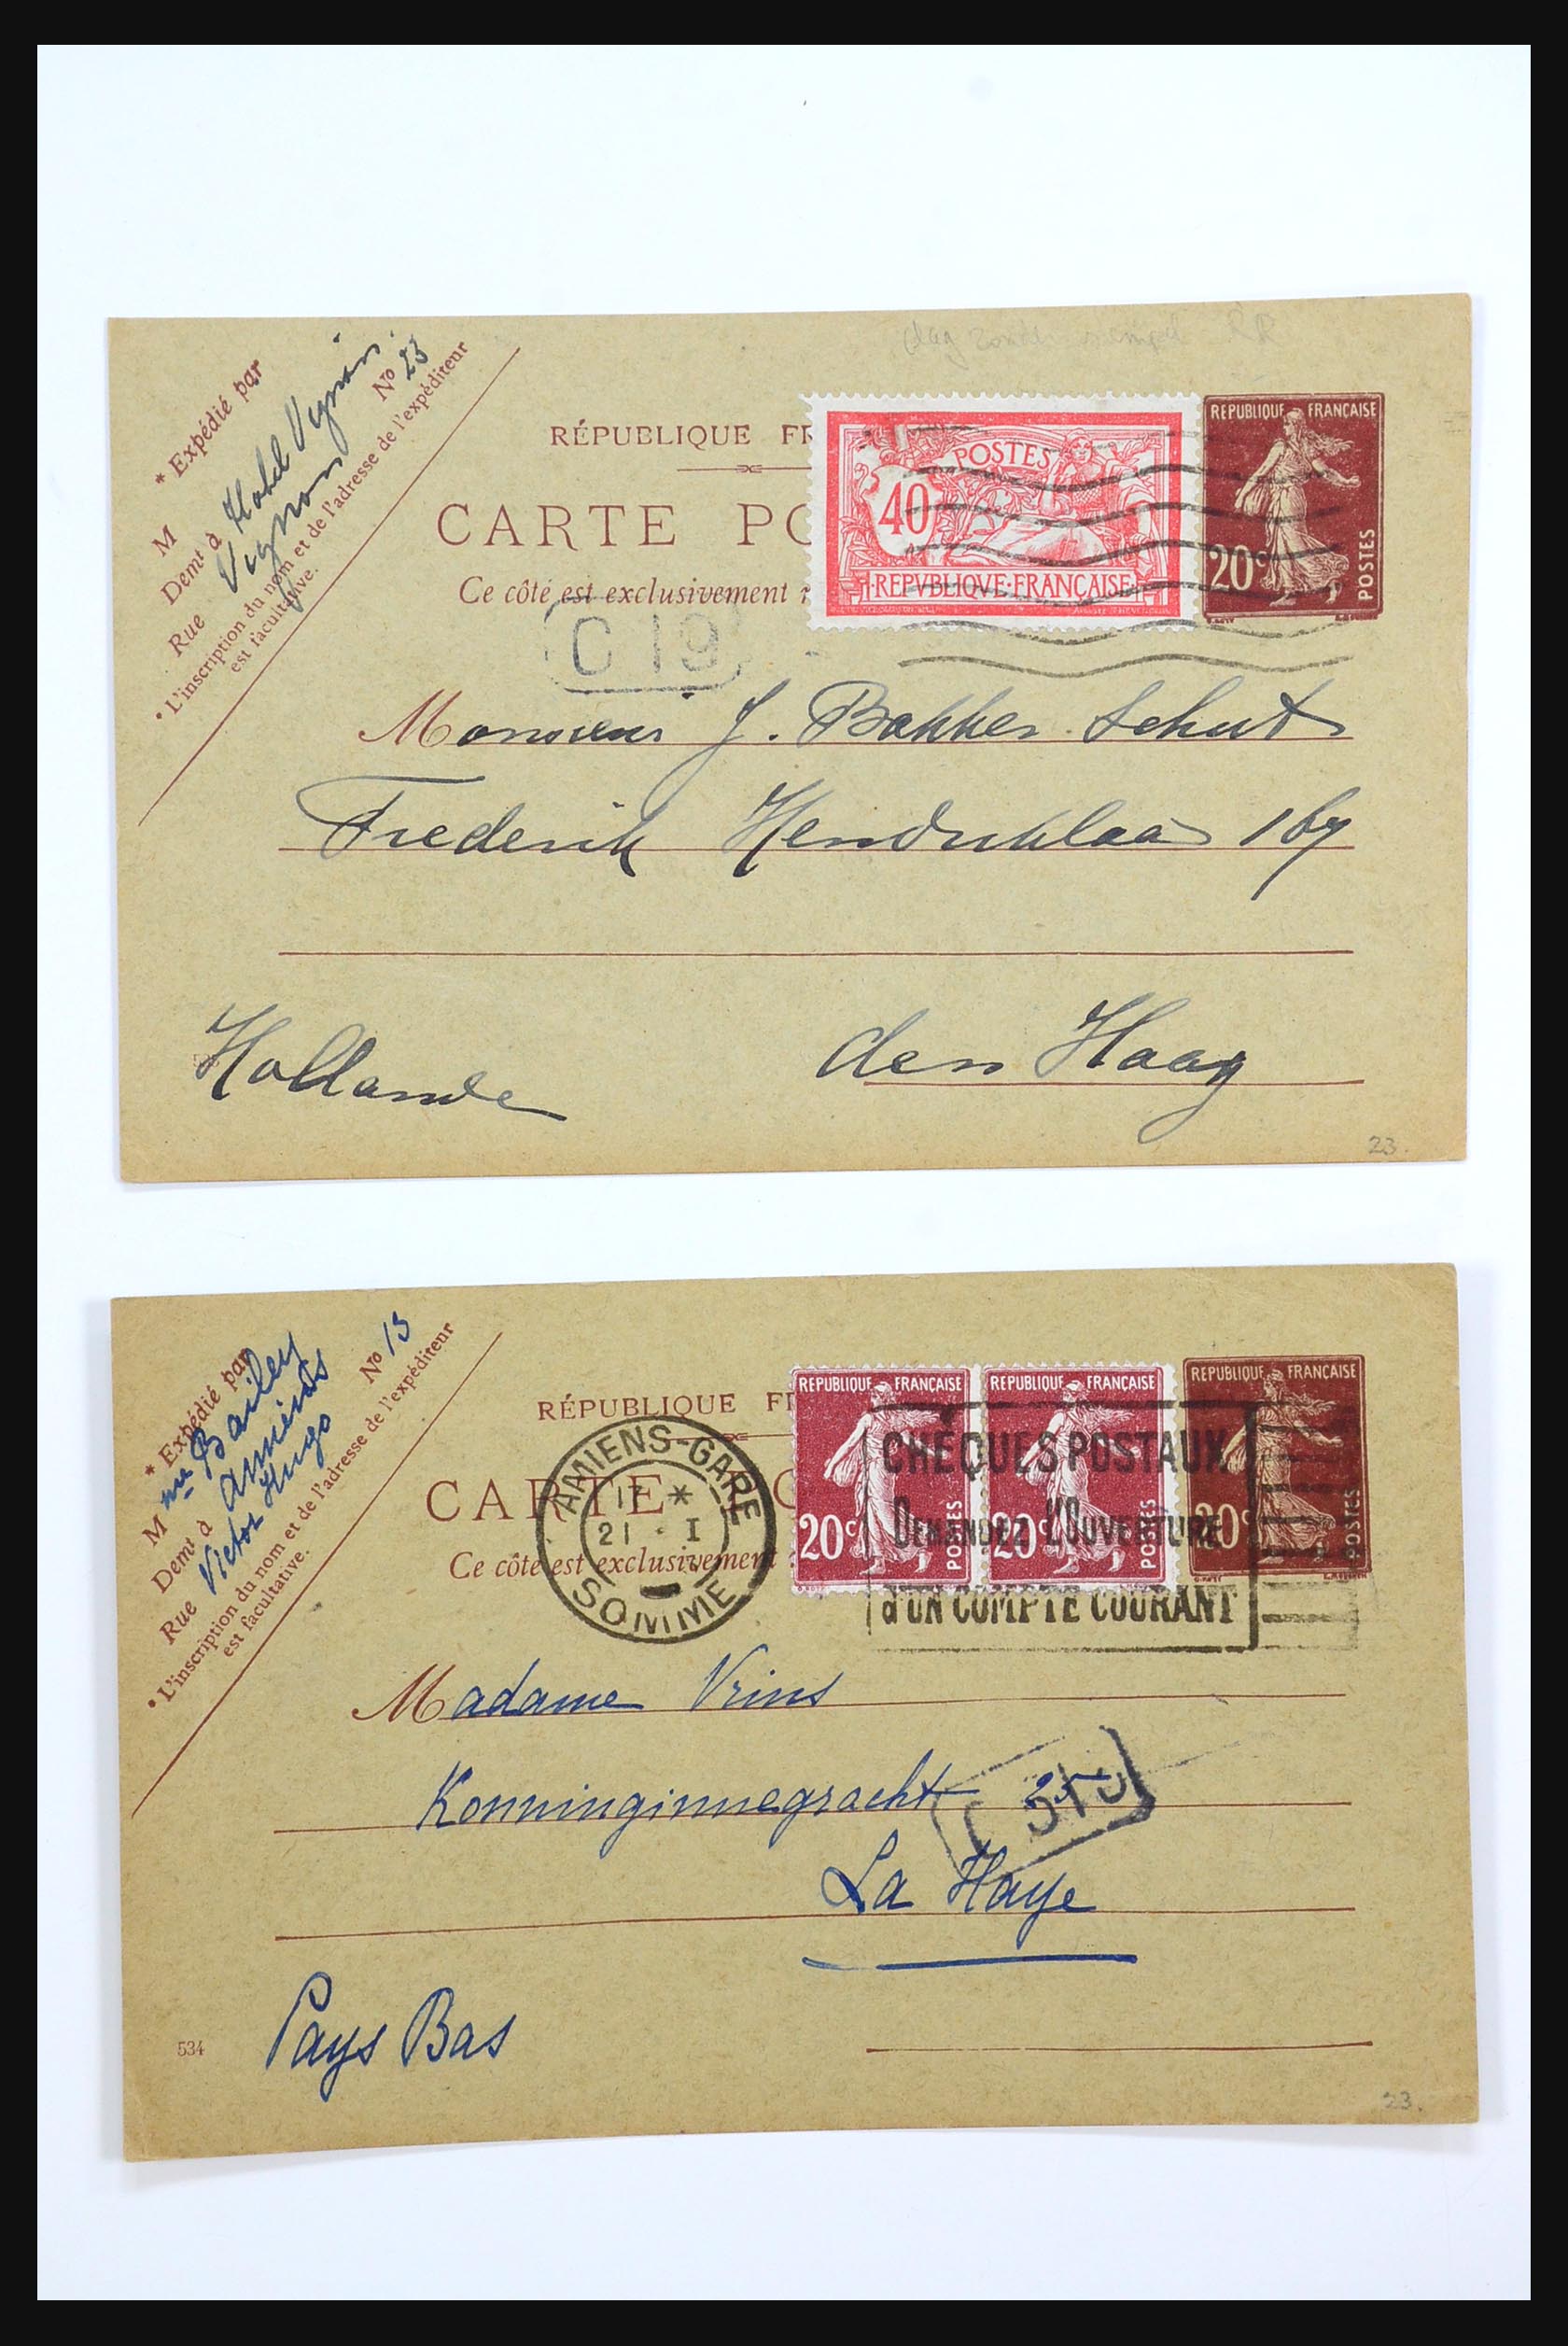 * Expédié par
M
Demt à Hotel Vignon
Rue Vignon No 23
* L'inscription du nom et de l'adresse de l'expéditeur
est facultative.
RÉPUBLIQUE FR
CARTE PO
Ce côté est exclusivement r
POSTES
40
REPVBLIQVE FRANÇAISE
REPUBLIQUE FRANÇAISE
20c
POSTES
C 19
Monsieur J. Bakker Schut
Frederik Hendriklaan 167
Hollande
den Haag
23.
* Expédié par
M me Bailey
Demt à Amiens
Rue Victor Hugo No 13
* L'inscription du nom et de l'adresse de l'expéditeur
est facultative.
RÉPUBLIQUE FR
CARTE PO
Ce côté est exclusivement
AMIENS-GARE
17 *
21 - I
SOMME
REPUBLIQUE FRANÇAISE
20c
POSTES
REPUBLIQUE FRANÇAISE
20c
POSTES
REPUBLIQUE FRANÇAISE
20c
POSTES
CHÈQUES POSTAUX
DEMANDEZ L'OUVERTURE
d'UN COMPTE COURANT
Madame Vrins
Konninginnegracht 25
La Haye
Pays Bas
534
23.